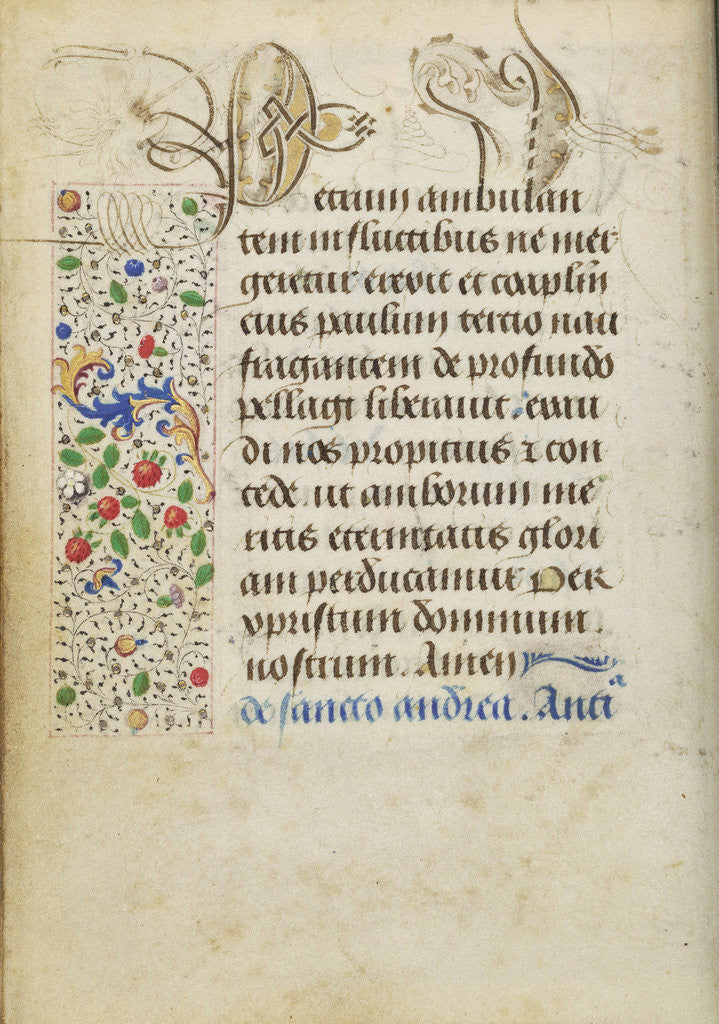 Petrum ambulan
tem in fluctibus ne mer-
geretur erexit et coaplm
eius paulum tercio nau
fragantem de profundo
pellagi liberauit. exau
di nos propitius ⁊ con
cede. ut amborum me
ritis eternitatis glori
am perducamur Per
xpristum dominum.
nostrum. Amen
de sancto andrea. Antiᵃ